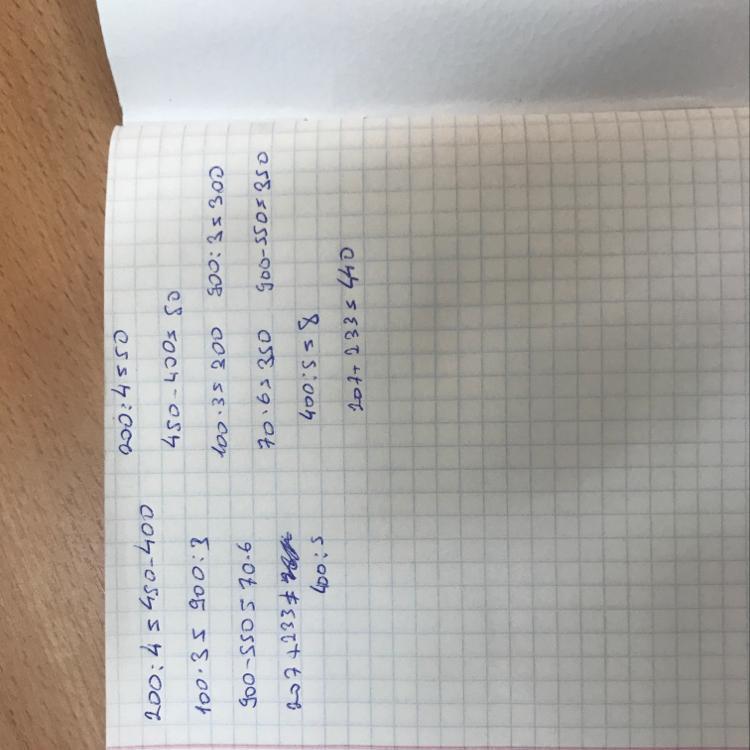 200:4=450-400
100·3=900:3
900-550=70·6
207+233≠
400:5
200:4=50
450-400=50
100·3=300 900:3=300
70·6=350 900-550=350
400:5=8
207+233=440